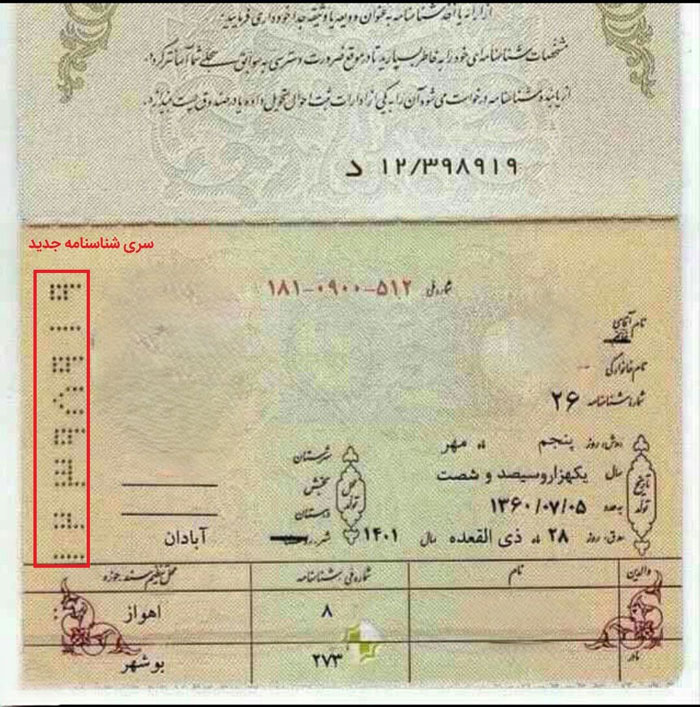 از ارائه یا اخذ شناسنامه به عنوان ودیعه یا وثیقه جدا خودداری فرمایید.
مشخصات شناسنامه‌ای خود را به خاطر بسپارید تا در موقع ضرورت دسترسی به سوابق سجلی شما آسانتر گردد.
از یابنده شناسنامه درخواست می شود آن را به یکی از ادارات ثبت احوال تحویل داده یا در صندوق پست بیندازد.
۱۲/۳۹۸۹۱۹ د
سری شناسنامه جدید
شماره ملی ۱۸۱-۰۹۰۰-۵۱۲
نام آقای
نام خانوادگی
شماره شناسنامه ۲۶
تاریخ تولد
روز پنجم ماه مهر
سال یکهزاروسیصد و شصت
۱۳۶۰/۰۷/۰۵
روز ۲۸ ماه ذی القعده سال ۱۴۰۱
محل تولد
شهرستان
بخش
دهستان
شهر آبادان
والدین نام شماره ملی شناسنامه محل تنظیم سند حوزه
۸ اهواز
مادر ۲۷۳ بوشهر